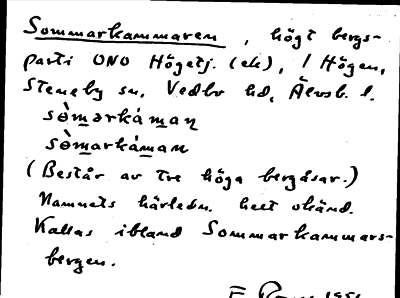 Sommarkammaren, högt bergs-
parti ONO Högetj. (ek), / Högen,
Steneby sn, Vedbo hd, Älvsb. l.
sòm̲ərkáman̲
sòm̲arkám̲an
(Består av tre höga bergåsar.)
Namnets härledn. helt okänd.
Kallas ibland Sommarkammars-
bergen.